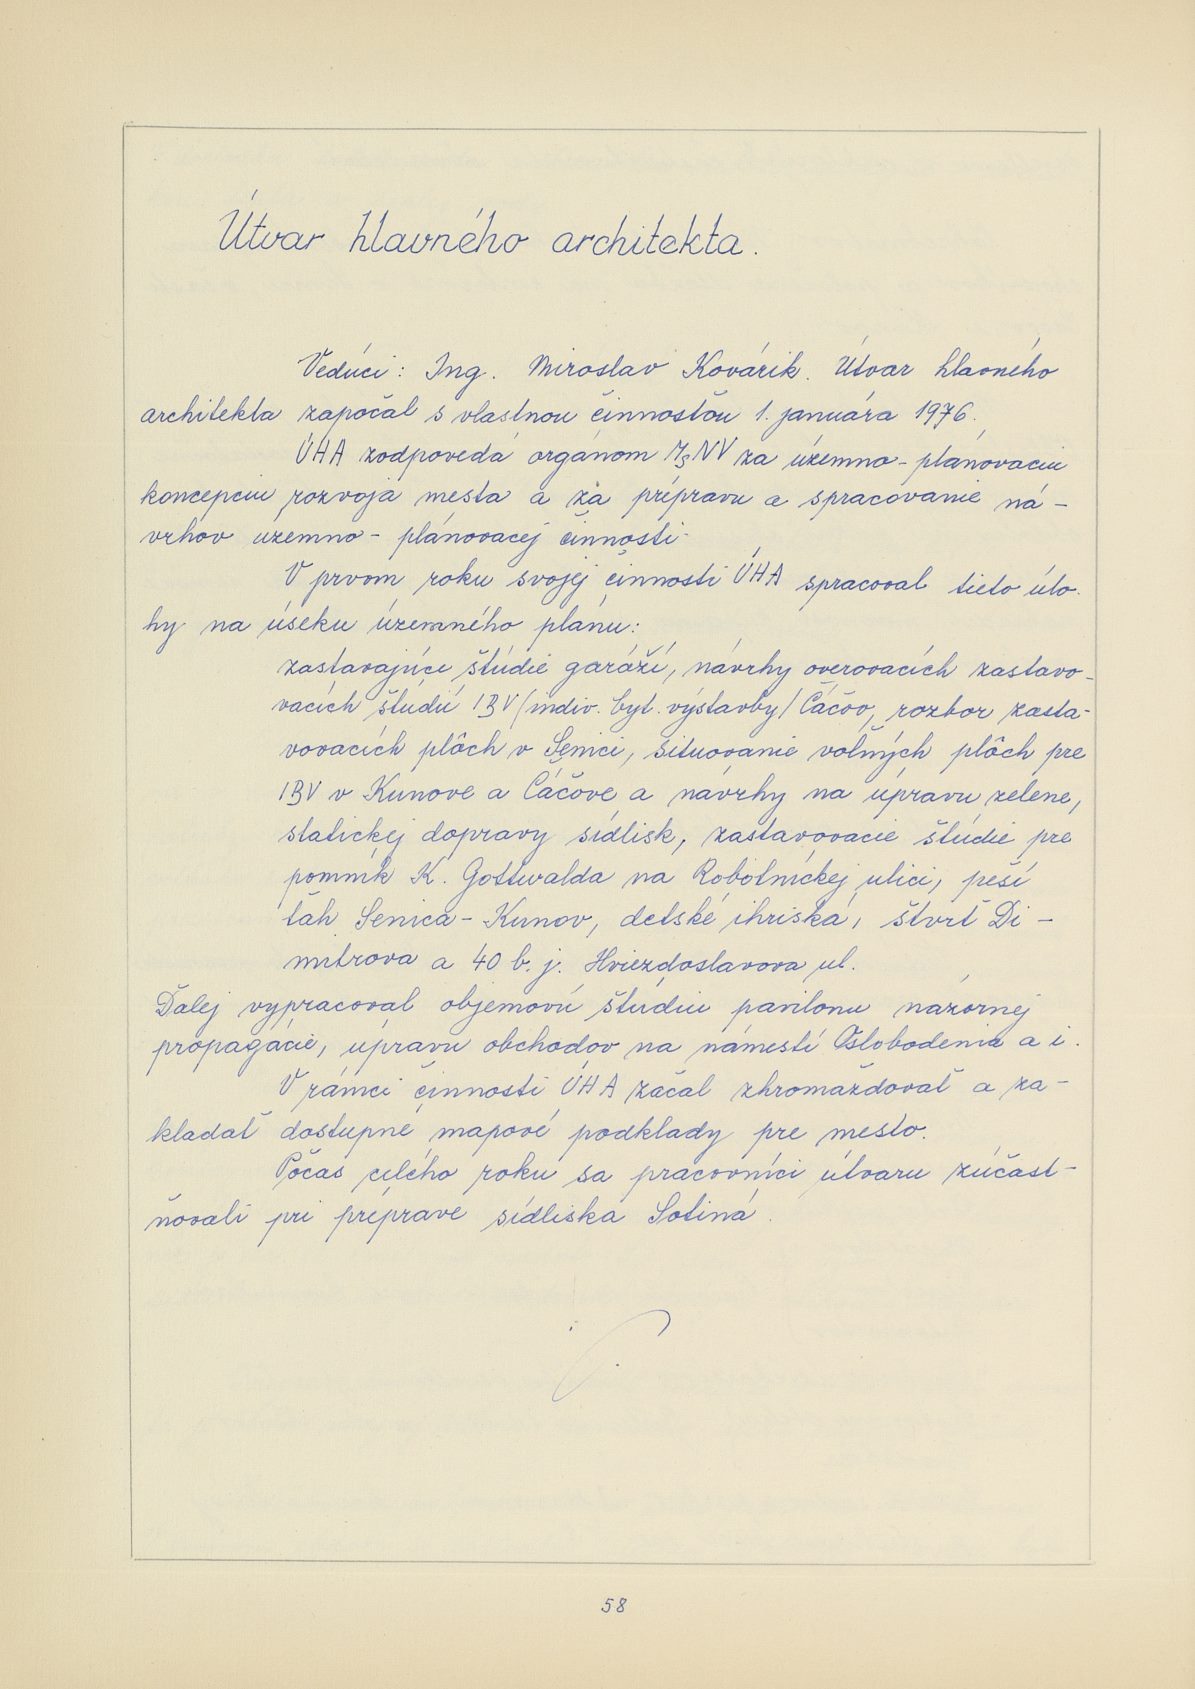 Útvar hlavného architekta.
Vedúci: Ing. Miroslav Kovárik. Útvar hlavného
architekta započal s vlastnou činnosťou 1. januára 1976.
ÚHA zodpovedá orgánom MsNV za územno-plánovaciu
koncepciu rozvoja mesta a za prípravu a spracovanie ná-
vrhov uzemno-plánovacej činnosti.
V prvom roku svojej činnosti ÚHA spracoval tieto úlo-
hy na úseku územného plánu:
zastavajúce štúdie garáží, návrhy overovacích zastavo-
vacích štúdií IBV /indiv. byt. výstavby/ Čáčov, rozbor zasta-
vovacích plôch v Senici, situovanie voľných plôch pre
IBV v Kunove a Čáčove a návrhy na úpravu zelene,
statickej dopravy sídlisk, zastavovacie štúdie pre
pomník K. Gottwalda na Robotníckej ulici, peší
ťah Senica - Kunov, detské ihriská, štvrť Di-
mitrova a 40 b. j. Hviezdoslavova ul.
Ďalej vypracoval objemovú štúdiu pavilonu názornej
propagácie, úpravu obchodov na námestí Oslobodenia a i.
V rámci činnosti ÚHA začal zhromažďovať a za-
kladať dostupné mapové podklady pre mesto.
Počas celého roku sa pracovníci útvaru zúčast-
ňovali pri príprave sídliska Sotiná.
58